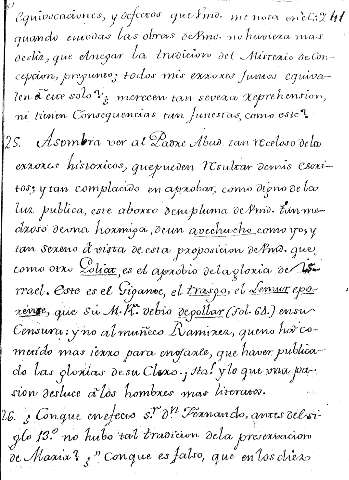 equivocaciones, y defectos que Vmd. me nota en el: 241
quando en todas las obras de Vmd. no huviera mas
desliz, que el negar la tradicion del Misterio de Con-
cepcion, pregunto; todos mis errores juntos equiva-
len à este solo? ¿ merecen tan severa reprehension,
ni tienen Consequencias tan funestas, como este?
25. Asombra ver al Padre Abad tan receloso de los
errores historicos, que pueden resultar de mis escri-
tos; y tan complacido en aprobar, como digno de la
luz publica, este aborto de su pluma de Vmd. Tan me-
droso de una hormiga, de un avechucho como yo, y
tan sereno à vista de esta proposicion de Vmd. que,
como otro Goliat, es el aprobio de la gloria de Is-
rrael. Este es el Gigante, el trasgo, el Lemur
que Sù M. Rr. debio degollar (fol. 68.) en su
Censura; y no al muñeco Ramirez, que no hà co-
metido mas ierro para enojarle, que haver publica-
do las glorias de su Clero. ¡ Ha! y lo que una pa-
sion desluce à los hombres mas literatos.
26. ¿ Conque en efecto Sr. Dn. Fernando, antes del si-
glo 13.º no hubo tal tradicion de la preservacion
de Maria? ¿ Conque es falso, que en los diez